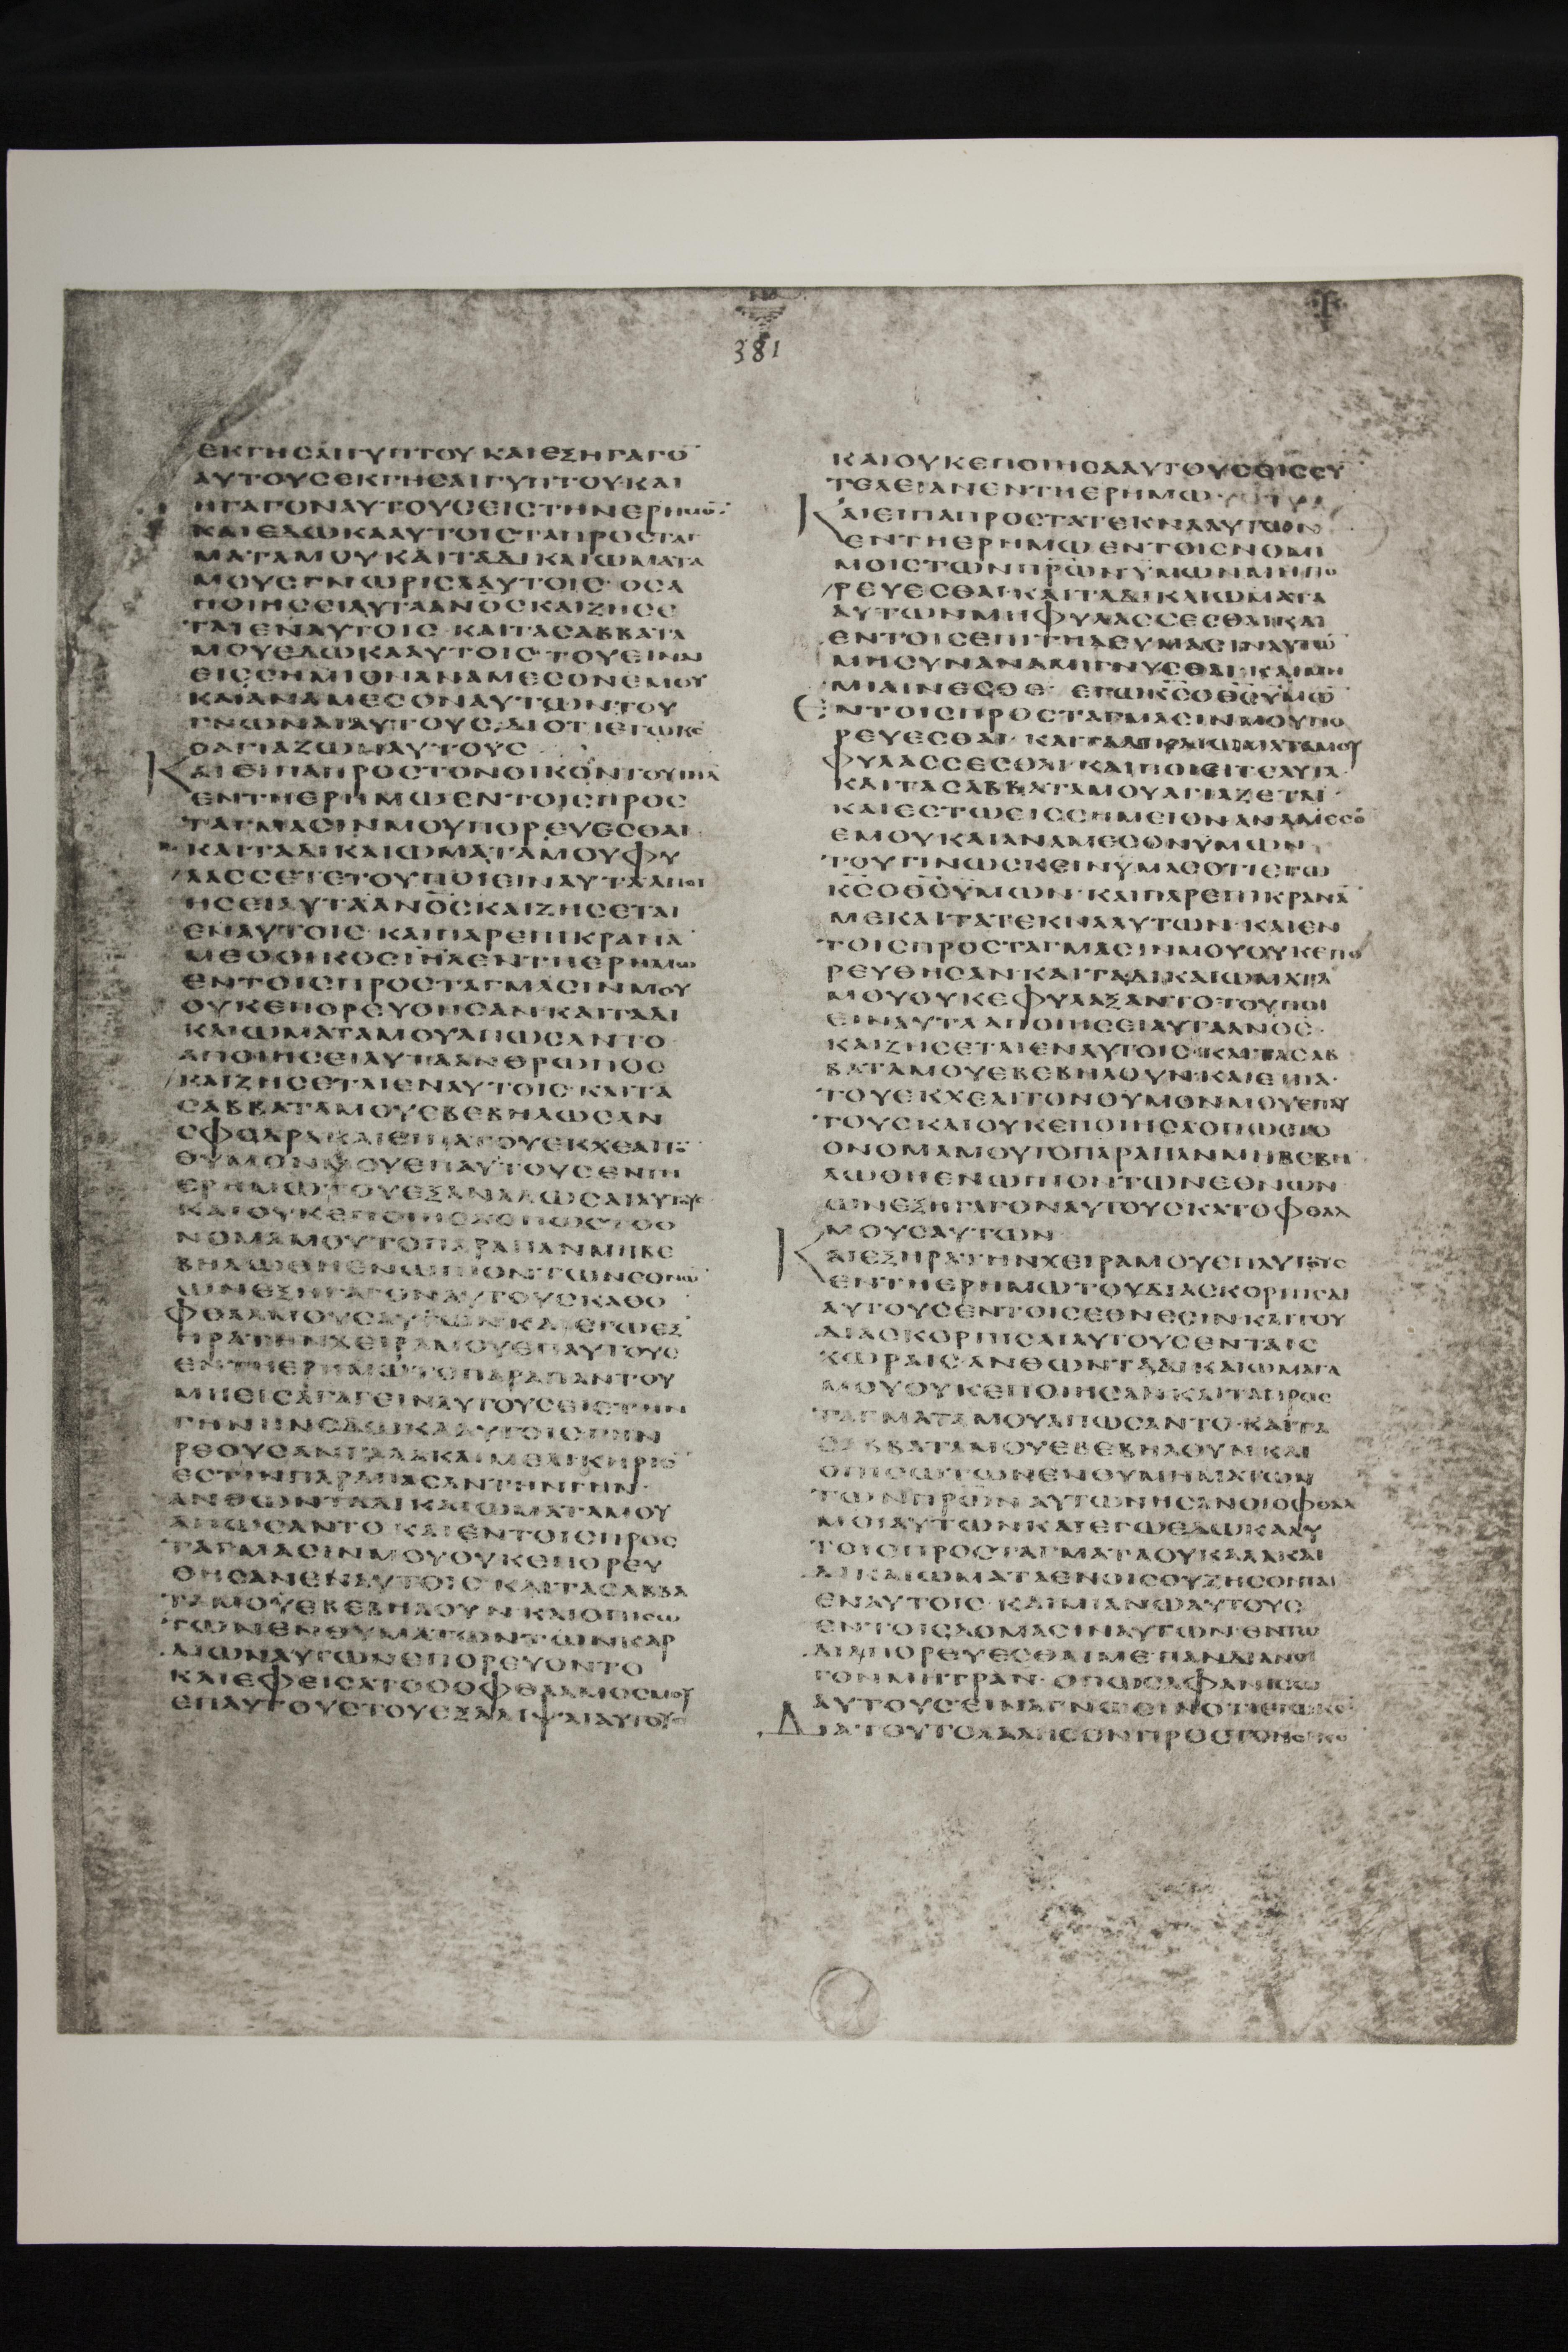 381
ΕΚΓΗϹΑΙΓΥΠΤΟΥΚΑΙΕΞΗΓΑΓΟ̅
ΑΥΤΟΥϹΕΚΓΗϹΑΙΓΥΠΤΟΥ·ΚΑΙ
ΗΓΑΓΟΝΑΥΤΟΥϹΕΙϹΤΗΝΕΡΗΜΟ̅·
ΚΑΙΕΔΩΚΑΑΥΤΟΙϹΤΑΠΡΟϹΤΑΓ
ΜΑΤΑΜΟΥΚΑΙΤΑΔΙΚΑΙΩΜΑΤΑ
ΜΟΥΕΓΝΩΡΙϹΑΑΥΤΟΙϹ·ΟϹΑ
ΠΟΙΗϹΕΙΑΥΤΑΑΝΟϹΚΑΙΖΗϹΕ
ΤΑΙΕΝΑΥΤΟΙϹ·ΚΑΙΤΑϹΑΒΒΑΤΑ
ΜΟΥΕΔΩΚΑΑΥΤΟΙϹ·ΤΟΥΕΙΝΑΙ
ΕΙϹϹΗΜΙΟΝΑΝΑΜΕϹΟΝΕΜΟΥ
ΚΑΙΑΝΑΜΕϹΟΝΑΥΤΩΝ·ΤΟΥ
ΓΝΩΝΑΙΑΥΤΟΥϹ·ΔΙΟΤΙΕΓΩΚϹ
ΟΑΓΙΑΖΩΝΑΥΤΟΥϹ
ΚΑΙΕΙΠΑΠΡΟϹΤΟΝΟΙΚΟΝΤΟΥΙΗΛ
ΕΝΤΗΕΡΗΜΩΕΝΤΟΙϹΠΡΟϹ
ΤΑΓΜΑϹΙΝΜΟΥΠΟΡΕΥΕϹΘΑΙ
ΚΑΙΤΑΔΙΚΑΙΩΜΑΤΑΜΟΥΦΥ
ΛΑϹϹΕΤΕΤΟΥΠΟΙΕΙΝΑΥΤΑΑΠΟΙ
ΗϹΕΙΑΥΤΑΑΝΟϹΚΑΙΖΗϹΕΤΑΙ
ΕΝΑΥΤΟΙϹ·ΚΑΙΠΑΡΕΠΙΚΡΑΝΑ̅
ΜΕΟΟΙΚΟϹΙΗΛΕΝΤΗΕΡΗΜΩ
ΕΝΤΟΙϹΠΡΟϹΤΑΓΜΑϹΙΝΜΟΥ
ΟΥΚΕΠΟΡΕΥΘΗϹΑΝ·ΚΑΙΤΑΔΙ
ΚΑΙΩΜΑΤΑΜΟΥΑΠΩϹΑΝΤΟ
ΑΠΟΙΗϹΕΙΑΥΤΑΑΝΘΡΩΠΟϹ
ΚΑΙΖΗϹΕΤΑΙΕΝΑΥΤΟΙϹ·ΚΑΙΤΑ
ϹΑΒΒΑΤΑΜΟΥΕΒΕΒΗΛΩϹΑΝ
ϹΦΟΔΡΑ·ΚΑΙΕΙΠΑΤΟΥΕΚΧΕΑΙΤΟ̅
ΘΥΜΟΝΜΟΥΕΠΑΥΤΟΥϹΕΝΤΗ
ΕΡΗΜΩΤΟΥΕΞΑΝΑΛΩϹΑΙΑΥΤΟΥϹ
ΚΑΙΟΥΚΕΠΟΙΗϹΑΟΠΩϹΤΟΟ
ΝΟΜΑΜΟΥΤΟΠΑΡΑΠΑΝΜΗΒΕ
ΒΗΛΩΘΗΕΝΩΠΙΟΝΤΩΝΕΘΝΩ̅
ΩΝΕΞΗΓΑΓΟΝΑΥΤΟΥϹΚΑΘΟ
ΦΘΑΛΜΟΥϹΑΥΤΩΝΚΑΙΕΓΩΕΞ
ΗΡΑΤΗΝΧΕΙΡΑΜΟΥΕΠΑΥΤΟΥϹ
ΕΝΤΗΕΡΗΜΩΤΟΠΑΡΑΠΑΝΤΟΥ
ΜΗΕΙϹΑΓΑΓΕΙΝΑΥΤΟΥϹΕΙϹΤΗΝ
ΓΗΝΗΝΕΔΩΚΑΑΥΤΟΙϹΓΗΝ
ΡΕΟΥϹΑΝΓΑΛΑΚΑΙΜΕΛΙΚΗΡΙΟ̅
ΕϹΤΙΝΠΑΡΑΠΑϹΑΝΤΗΝΓΗΝ·
ΑΝΘΩΝΤΑΔΙΚΑΙΩΜΑΤΑΜΟΥ
ΑΠΩϹΑΝΤΟ·ΚΑΙΕΝΤΟΙϹΠΡΟϹ
ΤΑΓΜΑϹΙΝΜΟΥΟΥΚΕΠΟΡΕΥ
ΘΗϹΑΝΕΝΑΥΤΟΙϹ·ΚΑΙΤΑϹΑΒΒΑ
ΤΑΜΟΥΕΒΕΒΗΛΟΥΝ·ΚΑΙΟΠΙϹΩ
ΤΩΝΕΝΘΥΜΑΤΩΝΤΩΝΚΑΡ
ΔΙΩΝΑΥΤΩΝΕΠΟΡΕΥΟΝΤΟ
ΚΑΙΕΦΕΙϹΑΤΟΟΟΦΘΑΛΜΟϹΜΟΥ
ΕΠΑΥΤΟΥϹΤΟΥΕΞΑΛΙΨΑΙΑΥΤΟΥϹ
ΚΑΙΟΥΚΕΠΟΙΗϹΑΑΥΤΟΥϹΕΙϹϹΥ̅
ΤΕΛΕΙΑΝΕΝΤΗΕΡΗΜΩ
ΚΑΙΕΙΠΑΠΡΟϹΤΑΤΕΚΝΑΑΥΤΩΝ
ΕΝΤΗΕΡΗΜΩΕΝΤΟΙϹΝΟΜΙ
ΜΟΙϹΤΩΝΠΡΩΝΥΜΩΝΜΗΠΟ
ΡΕΥΕϹΘΑΙ·ΚΑΙΤΑΔΙΚΑΙΩΜΑΤΑ
ΑΥΤΩΝΜΗΦΥΛΑϹϹΕϹΘΑΙ·ΚΑΙ
ΕΝΤΟΙϹΕΠΙΤΗΔΕΥΜΑϹΙΝΑΥΤΩ̅
ΜΗϹΥΝΑΝΑΜΙΓΝΥϹΘΑΙ·ΚΑΙΜΗ
ΜΙΑΙΝΕϹΘΕ·ΕΓΩΚϹΟΘϹΥΜΩ̅
ΕΝΤΟΙϹΠΡΟϹΤΑΓΜΑϹΙΝΜΟΥΠΟ
ΡΕΥΕϹΘΑΙ·ΚΑΙΤΑΔΙΚΑΙΩΜΑΤΑΜΟΥ
ΦΥΛΑϹϹΕϹΘΑΙ·ΚΑΙΠΟΙΕΙΤΕΑΥΤΑ·
ΚΑΙΤΑϹΑΒΒΑΤΑΜΟΥΑΓΙΑΖΕΤΑΙ·
ΚΑΙΕϹΤΩΕΙϹϹΗΜΕΙΟΝΑΝΑΜΕϹΟ̅
ΕΜΟΥΚΑΙΑΝΑΜΕϹΟΝΥΜΩΝ
ΤΟΥΓΙΝΩϹΚΕΙΝΥΜΑϹΟΤΙΕΓΩ
ΚϹΟΘϹΥΜΩΝ·ΚΑΙΠΑΡΕΠΙΚΡΑΝΑ̅
ΜΕΚΑΙΤΑΤΕΚΝΑΑΥΤΩΝ·ΚΑΙΕΝ
ΤΟΙϹΠΡΟϹΤΑΓΜΑϹΙΝΜΟΥΟΥΚΕΠΟ
ΡΕΥΘΗϹΑΝ·ΚΑΙΤΑΔΙΚΑΙΩΜΑΤΑ
ΜΟΥΟΥΚΕΦΥΛΑΞΑΝΤΟ·ΤΟΥΠΟΙ
ΕΙΝΑΥΤΑΑΠΟΙΗϹΕΙΑΥΤΑΑΝΟϹ·
ΚΑΙΖΗϹΕΤΑΙΕΝΑΥΤΟΙϹ·ΚΑΙΤΑϹΑΒ
ΒΑΤΑΜΟΥΕΒΕΒΗΛΟΥΝ·ΚΑΙΕΙΠΑ·
ΤΟΥΕΚΧΕΑΙΤΟΝΘΥΜΟΝΜΟΥΕΠΑΥ
ΤΟΥϹΚΑΙΟΥΚΕΠΟΙΗϹΑΟΠΩϹΤΟ
ΟΝΟΜΑΜΟΥΤΟΠΑΡΑΠΑΝΜΗΒΕΒΗ
ΛΩΘΗΕΝΩΠΙΟΝΤΩΝΕΘΝΩΝ
ΩΝΕΞΗΓΑΓΟΝΑΥΤΟΥϹΚΑΤΟΦΘΑΛ
ΜΟΥϹΑΥΤΩΝ
ΚΑΙΕΞΗΡΑΤΗΝΧΕΙΡΑΜΟΥΕΠΑΥΤΟΥϹ
ΕΝΤΗΕΡΗΜΩΤΟΥΔΙΑϹΚΟΡΠΙϹΑΙ
ΑΥΤΟΥϹΕΝΤΟΙϹΕΘΝΕϹΙΝΚΑΙΤΟΥ
ΔΙΑϹΚΟΡΠΙϹΑΙΑΥΤΟΥϹΕΝΤΑΙϹ
ΧΩΡΑΙϹ·ΑΝΘΩΝΤΑΔΙΚΑΙΩΜΑΤΑ
ΜΟΥΟΥΚΕΠΟΙΗϹΑΝ·ΚΑΙΤΑΠΡΟϹ
ΤΑΓΜΑΤΑΜΟΥΑΠΩϹΑΝΤΟ·ΚΑΙΤΑ
ϹΑΒΒΑΤΑΜΟΥΕΒΕΒΗΛΟΥΝ·ΚΑΙ
ΟΠΙϹΩΤΩΝΕΝΘΥΜΗΜΑΤΩΝ
ΤΩΝΠΡΩΝΑΥΤΩΝΗϹΑΝΟΙΟΦΘΑΛ
ΜΟΙΑΥΤΩΝΚΑΙΕΓΩΕΔΩΚΑΑΥ
ΤΟΙϹΠΡΟϹΤΑΓΜΑΤΑΟΥΚΑΛΑΚΑΙ
ΔΙΚΑΙΩΜΑΤΑΕΝΟΙϹΟΥΖΗϹΟΝΤΑΙ
ΕΝΑΥΤΟΙϹ·ΚΑΙΜΙΑΝΩΑΥΤΟΥϹ
ΕΝΤΟΙϹΔΟΜΑϹΙΝΑΥΤΩΝ·ΕΝΤΩ
ΔΙΑΠΟΡΕΥΕϹΘΑΙΜΕΠΑΝΔΙΑΝΟΙ
ΓΟΝΜΗΤΡΑΝ·ΟΠΩϹΑΦΑΝΙϹΩ
ΑΥΤΟΥϹΕΙΝΑΓΝΩϹΙΝΟΤΙΕΓΩΚϹ
ΔΙΑΤΟΥΤΟΛΑΛΗϹΟΝΠΡΟϹΤΟΝΟΙΚΟ̅